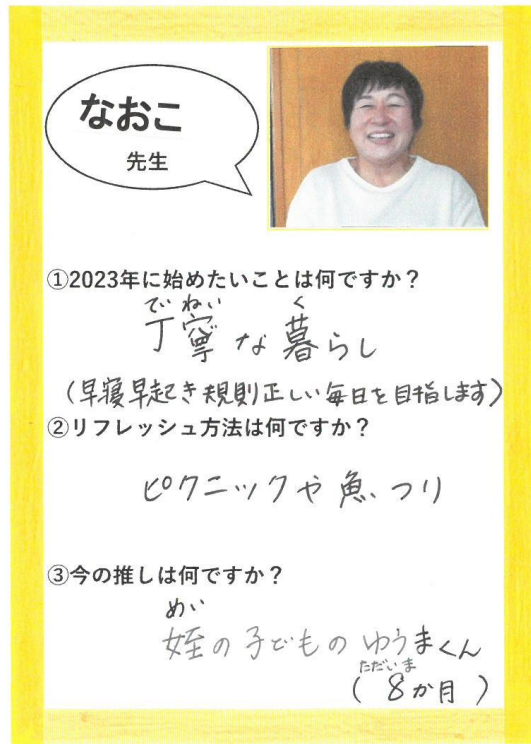 なおこ
先生
①2023年に始めたいことは何ですか?
ていねい く
丁寧な暮らし
(早寝早起き規則正しい毎日を目指します)
②リフレッシュ方法は何ですか?
ピクニックや魚つり
③今の推しは何ですか?
めい
姪の子どものゆうまくん
ただいま
(8か月)